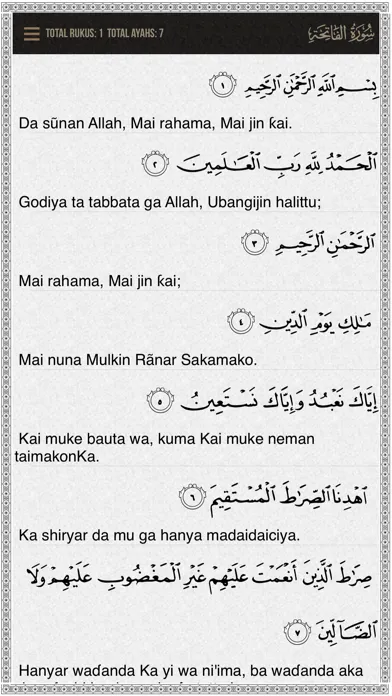 TOTAL RUKUS: 1 TOTAL AYAHS: 7 سُورَةُ الفَاتِحَةِ
بِسْمِ اللَّهِ الرَّحْمَٰنِ الرَّحِيمِ ١
Da sũnan Allah, Mai rahama, Mai jin ƙai.
الْحَمْدُ لِلَّهِ رَبِّ الْعَالَمِينَ ٢
Godiya ta tabbata ga Allah, Ubangijin halittu;
الرَّحْمَٰنِ الرَّحِيمِ ٣
Mai rahama, Mai jin ƙai;
مَالِكِ يَوْمِ الدِّينِ ٤
Mai nuna Mulkin Rãnar Sakamako.
إِيَّاكَ نَعْبُدُ وَإِيَّاكَ نَسْتَعِينُ ٥
Kai muke bauta wa, kuma Kai muke neman
taimakonKa.
اهْدِنَا الصِّرَاطَ الْمُسْتَقِيمَ ٦
Ka shiryar da mu ga hanya madaidaiciya.
صِرَاطَ الَّذِينَ أَنْعَمْتَ عَلَيْهِمْ غَيْرِ الْمَغْضُوبِ عَلَيْهِمْ وَلَا
الضَّالِّينَ ٧
Hanyar waɗanda Ka yi wa ni'ima, ba waɗanda aka